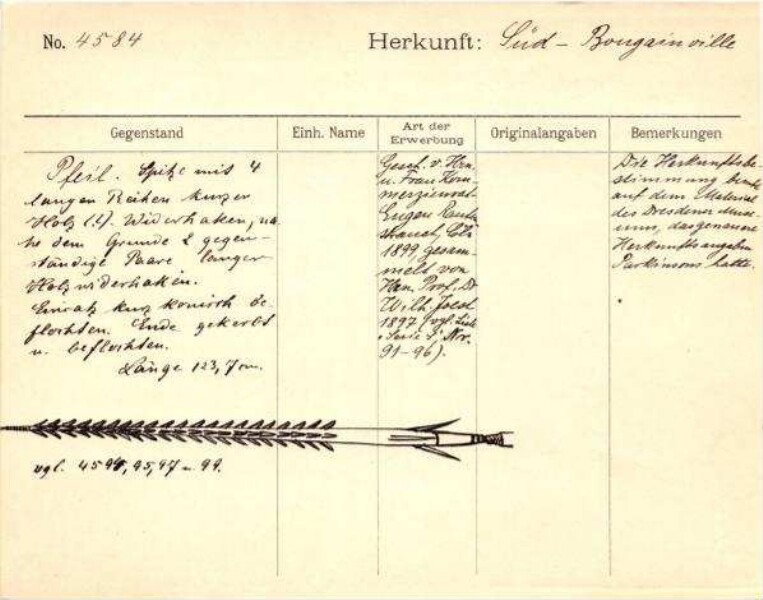 No. 4584
Herkunft: Süd-Bougainville
Gegenstand
Einh. Name
Art der
Erwerbung
Originalangaben
Bemerkungen
Pfeil. Spitze mit 4
langen Reihen kurzer
Holz (?) Widerhaken, na-
he dem Grunde 2 gegen-
ständige Paare langer
Holzwiderhaken.
Einsatz kurz konisch be-
flochten. Ende gekerbt
u. beflochten.
Länge 123,7 cm.
Gesch. v. Hrn
u. Frau Kom-
merzienrat
Eugen Rauten-
strauch, Cöln
1899, gesam-
melt von
Hrn. Prof. Dr
Wilh. Joest
1897 (vgl. Liste
Serie I, Nor.
91-96).
Die Herkunftsbe-
stimmung beruht
auf dem Material
des Dresdener Muse-
ums, das genauere
Herkunftsangaben
Parkinsons hatte.
vgl. 4594, 95, 97 u. 99.